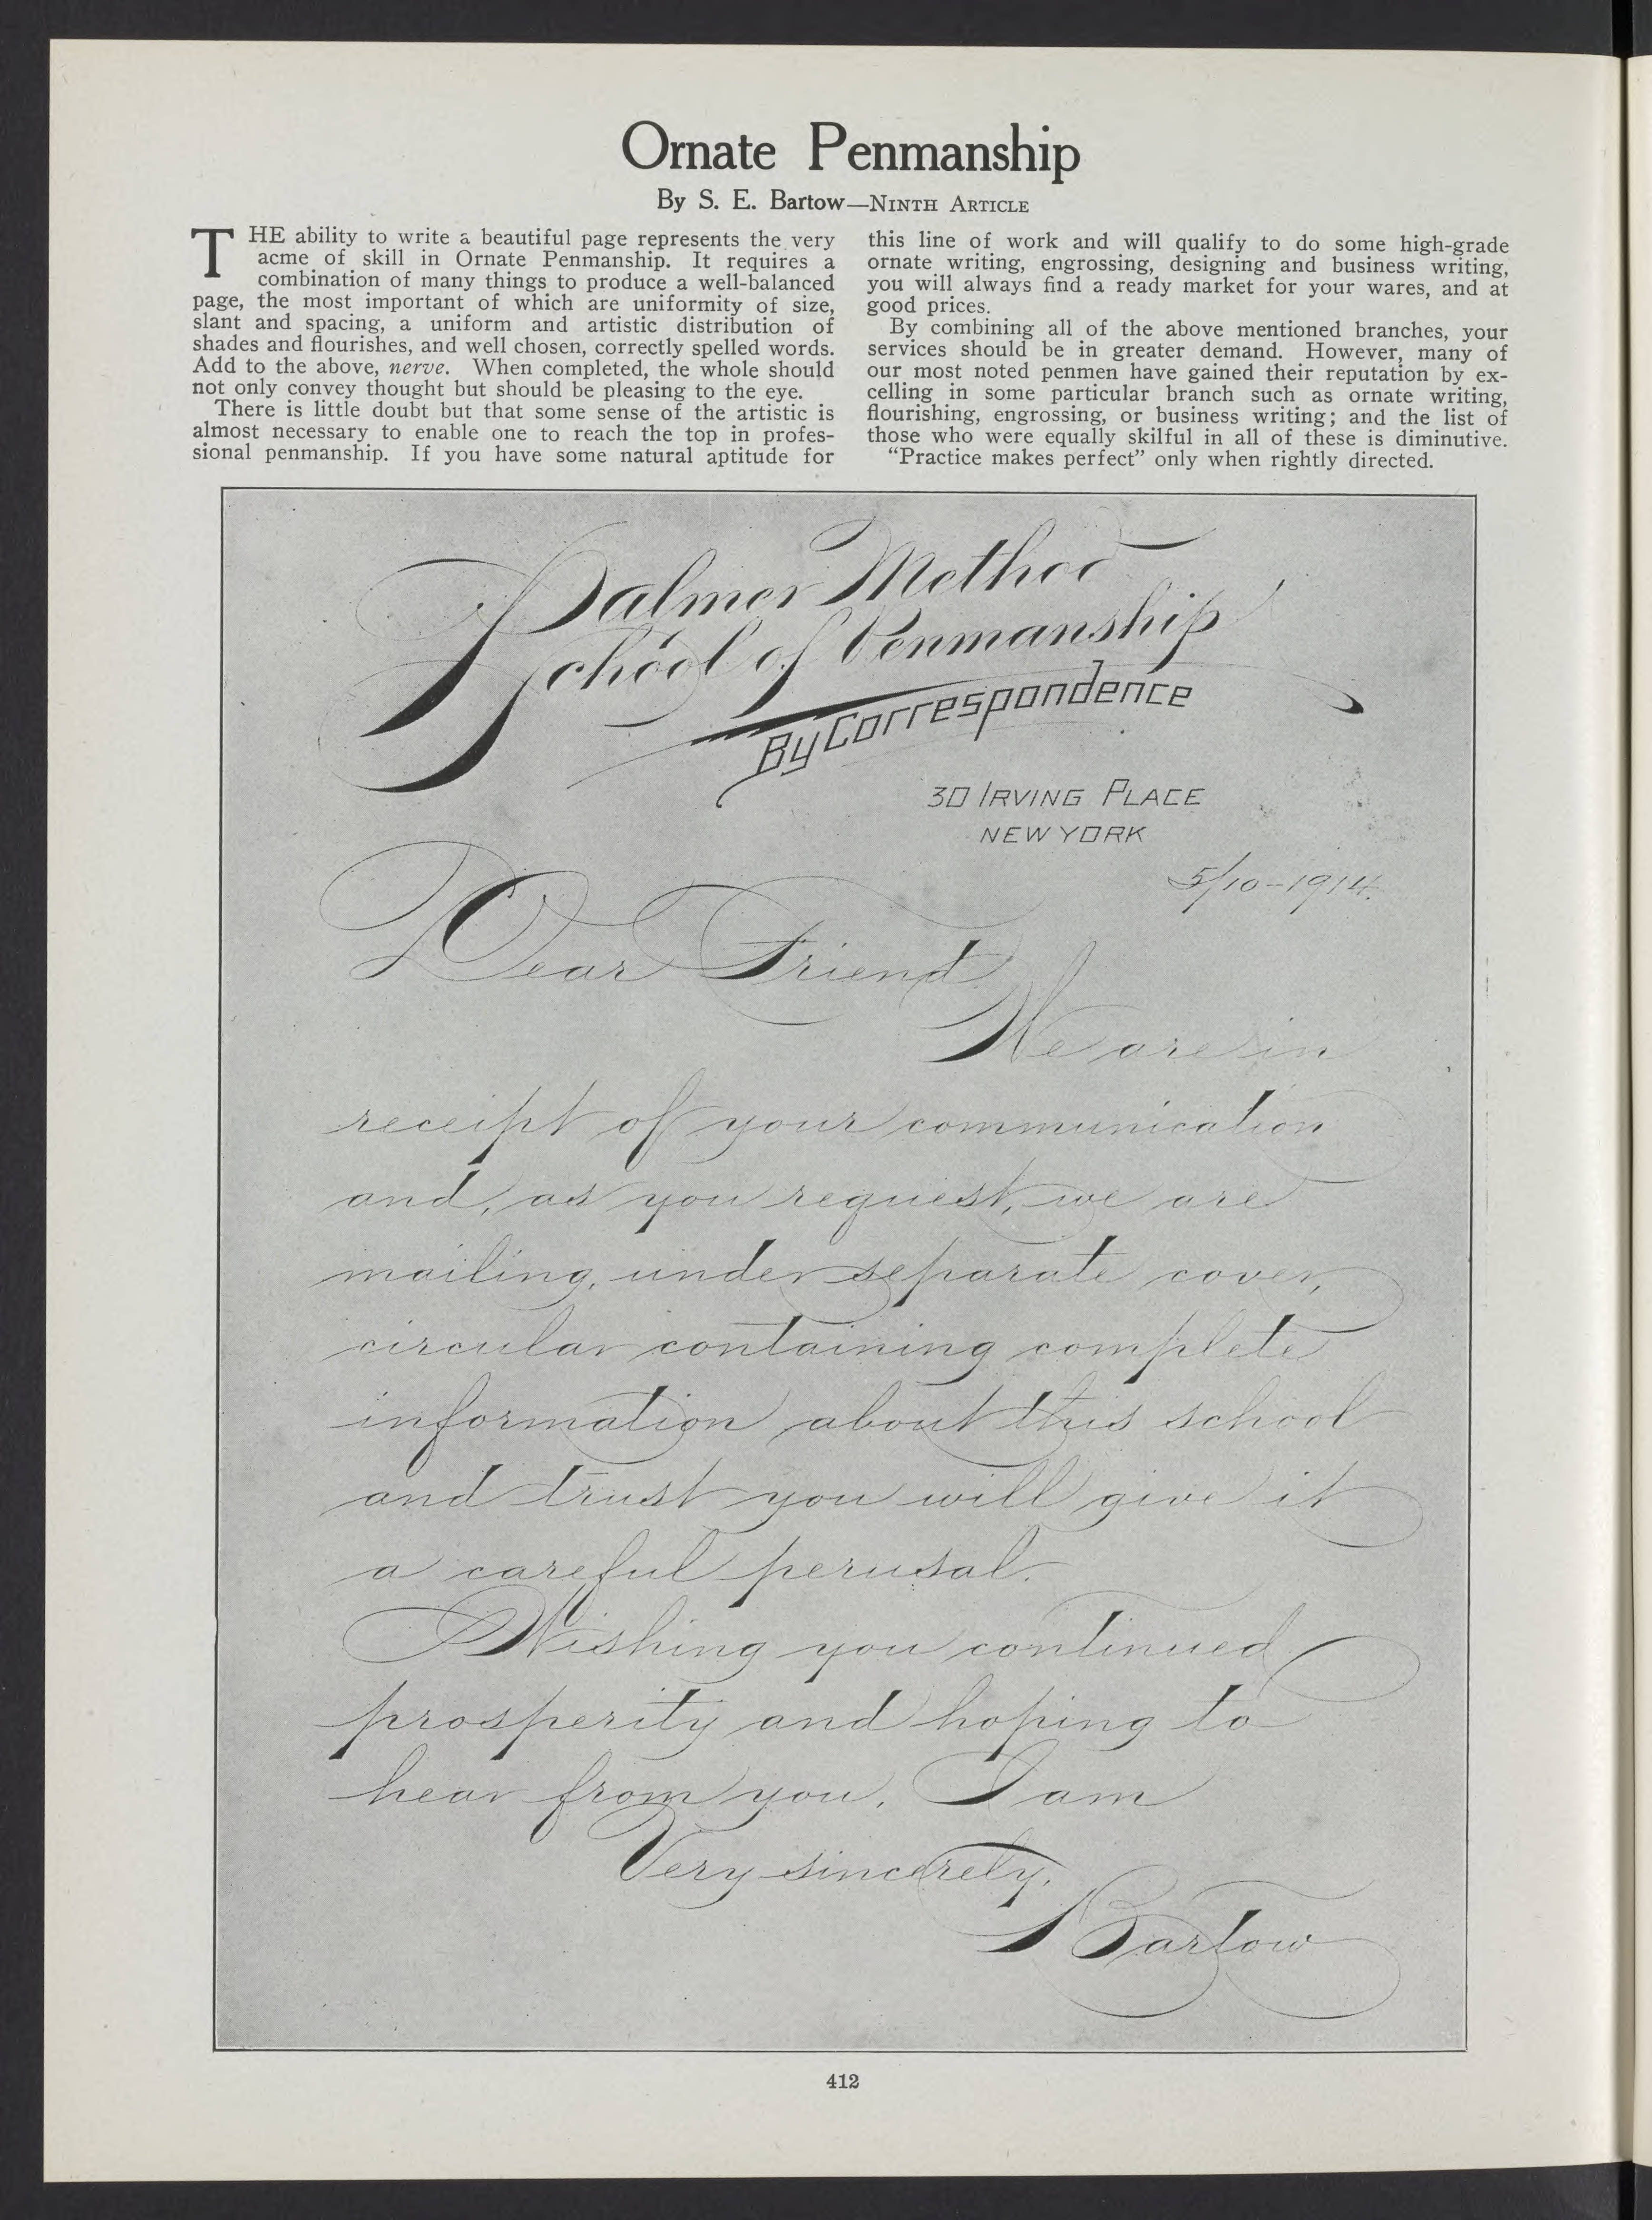 Ornate Penmanship
By S. E. Bartow—NINTH ARTICLE
THE ability to write a beautiful page represents the very
acme of skill in Ornate Penmanship. It requires a
combination of many things to produce a well-balanced
page, the most important of which are uniformity of size,
slant and spacing, a uniform and artistic distribution of
shades and flourishes, and well chosen, correctly spelled words.
Add to the above, nerve. When completed, the whole should
not only convey thought but should be pleasing to the eye.
There is little doubt but that some sense of the artistic is
almost necessary to enable one to reach the top in profes-
sional penmanship. If you have some natural aptitude for
this line of work and will qualify to do some high-grade
ornate writing, engrossing, designing and business writing,
you will always find a ready market for your wares, and at
good prices.
By combining all of the above mentioned branches, your
services should be in greater demand. However, many of
our most noted penmen have gained their reputation by ex-
celling in some particular branch such as ornate writing,
flourishing, engrossing, or business writing; and the list of
those who were equally skilful in all of these is diminutive.
"Practice makes perfect" only when rightly directed.
Palmer Method
School of Penmanship
By Correspondence
30 IRVING PLACE
NEW YORK
5/10-1914.
Dear Friend
We are in
receipt of your communication
and, as you request, we are
mailing, under separate cover,
circular containing complete
information about this school
and trust you will give it
a careful perusal.
Wishing you continued
prosperity and hoping to
hear from you, I am
Very sincerely,
Bartow
412